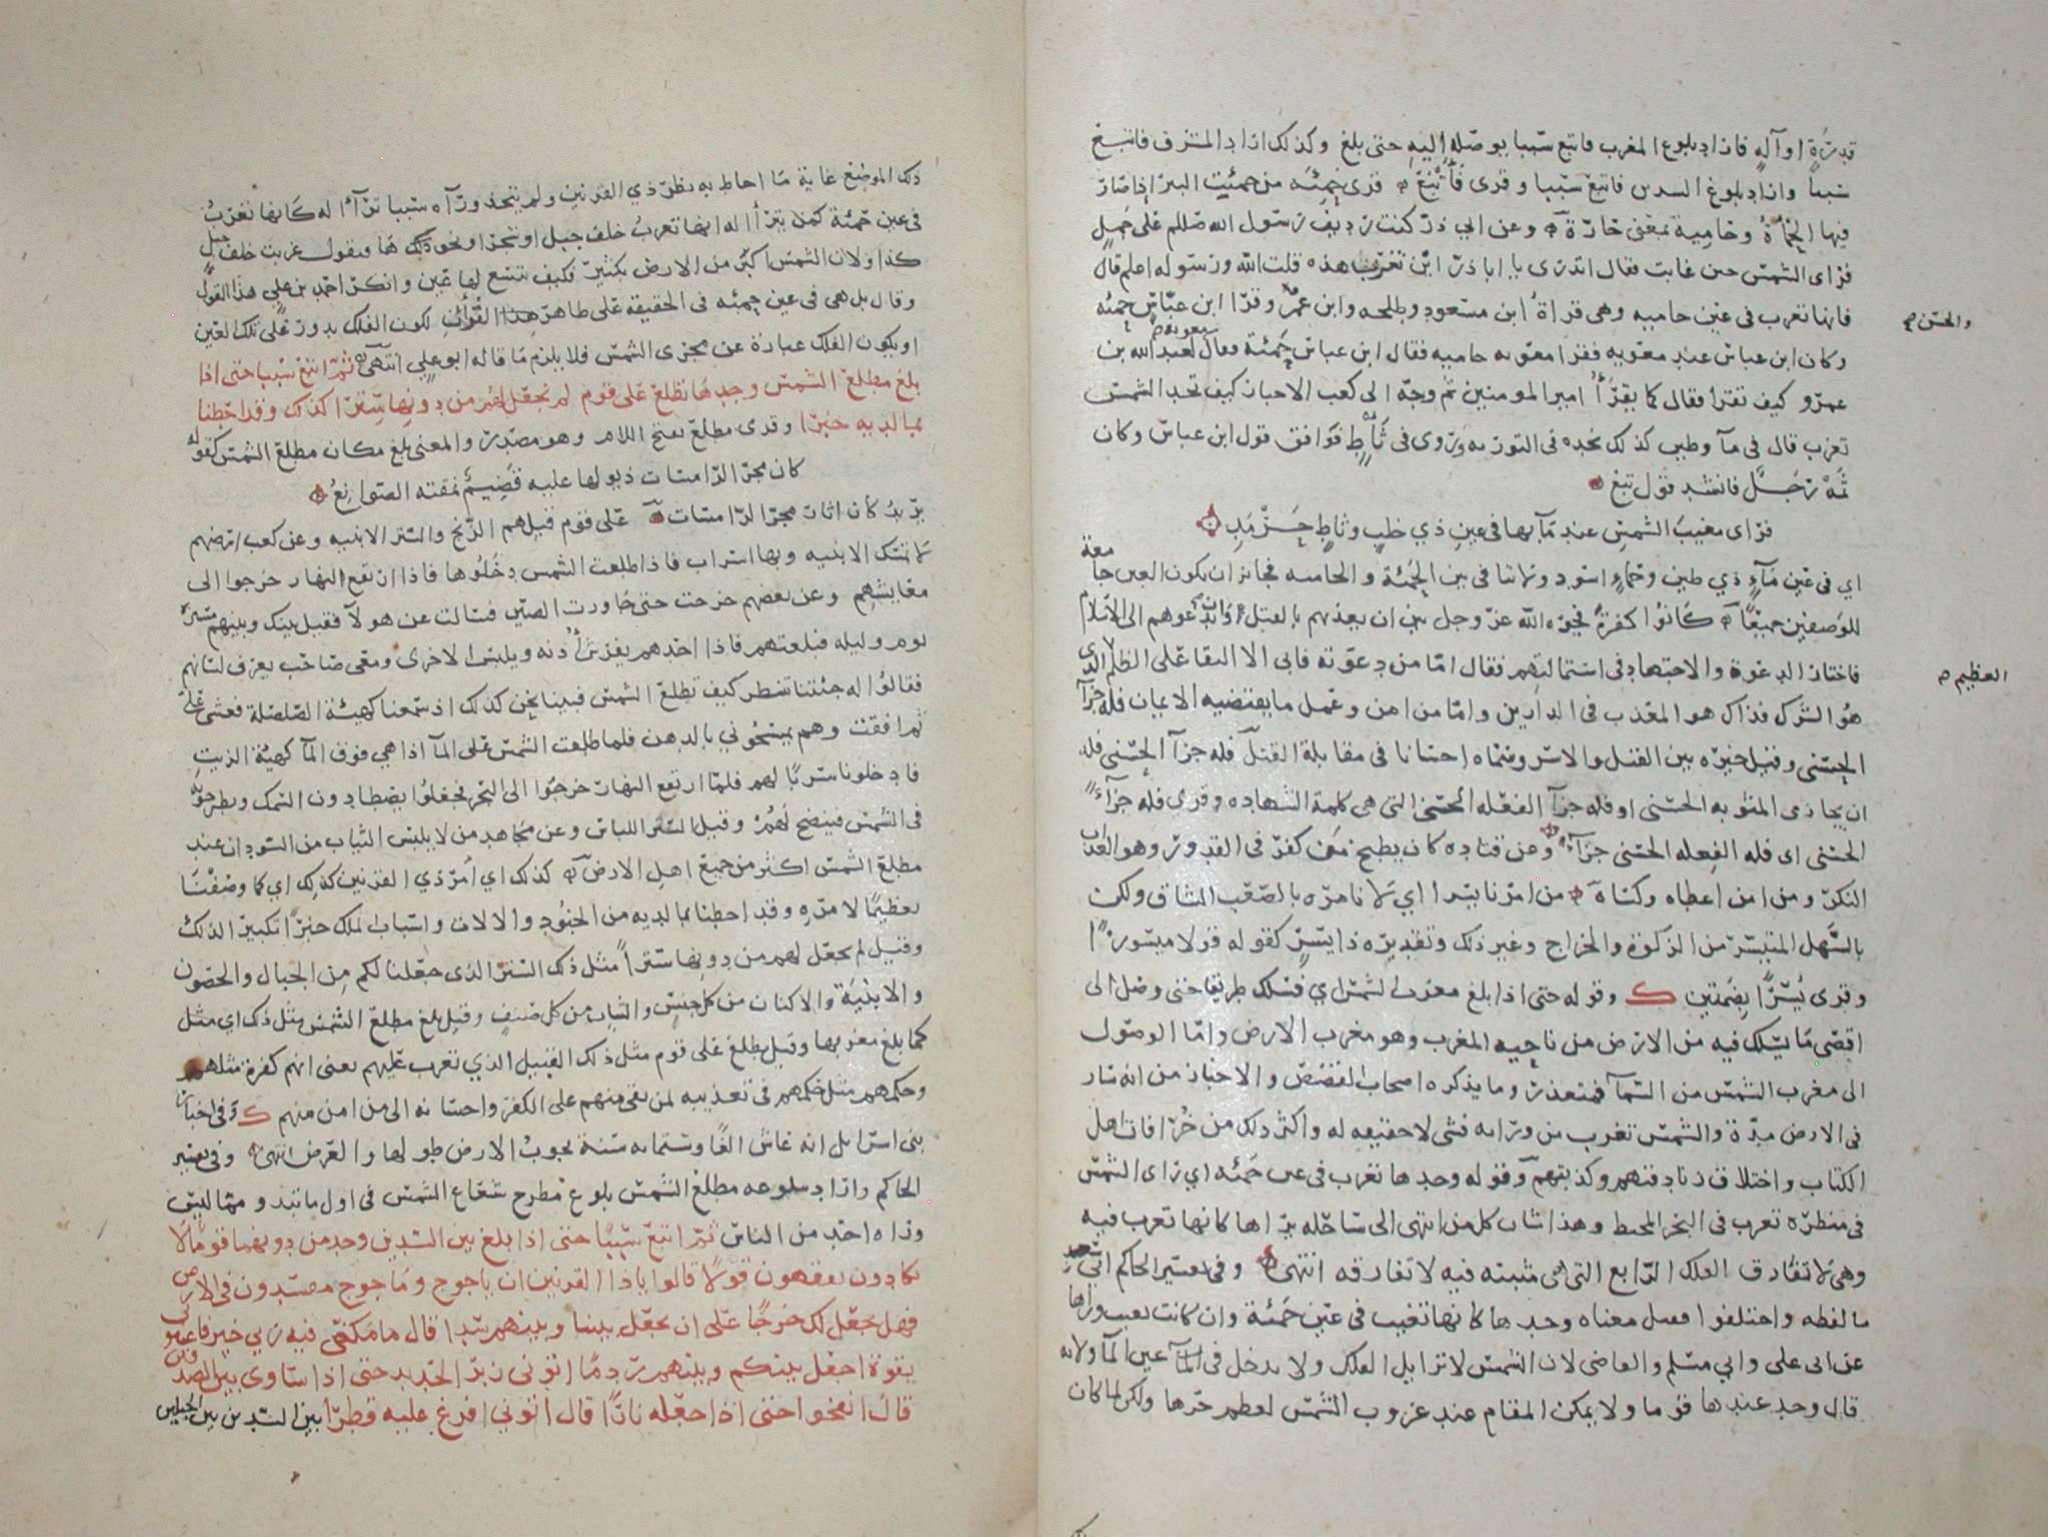 قدرة او آلة فاذا اراد بلوغ المغرب فاتبع سببا يوصله اليه حتى بلغ وكذلك اراد المشرق فاتبع
سببا واراد بلوغ السدين فاتبع سببا وقرى فأتبع قرى حمئة من حمئت البئر اذا صار
فيها الحمأة وحامية بمعنى حارة وعن ابي ذر كنت رديف رسول الله صللم على جمل
فرأى الشمس حين غابت فقال اتدرى يا ابا ذر اين تغرب هذه قلت الله ورسوله اعلم قال
فانها تغرب في عين حاميه وهى قراة ابن مسعود وطلحه وابن عمر وقرا ابن عباس حمئه
والحسن
وكان ابن عباس عند معويه فقرا معويه حاميه فقال ابن عباس حمئة فقال معويه لعبد الله بن
عمرو كيف تقترا فقال كما يقرأ امير المومنين ثم وجه الى كعب الاحبار كيف تجد الشمس
تغرب قال فى مآ وطين كذلك نجده فى التوريه وروى فى ثأط فوافق قول ابن عباس وكان
ثمه رجل فانشد قول تبع
فراى مغيب الشمس عند مآبها في عين ذي خلب وثاط حرمد
اي فى عين مآء ذي طين وحماء اسود ولا تنافي بين الحمئة والحاميه فجائز ان تكون العين جامعة
للوصفين جميعا كانوا كفرة فخيره الله عز وجل بين ان يعذبهم بالقتل وان يدعوهم الى الاسلام
فاختار الدعوة والاجتهاد فى استمالتهم فقال امّا من دعوته فابى الا البقا على الظلم الذى
العظيم
هو الشرك فذاك هو المعذب فى الدارين وامّا من امن وعمل ما يقتضيه الايمان فله جزآ
الحسنى وقيل خيره بين القتل والاسر وسماه احسانا فى مقابلة القتل فله جزآ الحسنى فله
ان يجازى المثوبه الحسنى او فله جزآ الفعله الحسنى التى هى كلمة الشهاده وقرى فله جزآء
الحسنى اى فله الفعله الحسنى جزآء وعن قتاده كان يطبخ من كفر فى القدور وهو العذاب
النكر ومن امن اعطاه وكساه من امرنا يسرا اي لا نامره بالصعب الشاق ولكن
بالسهل المتيسر من الزكوة والخراج وغير ذلك وتقديره ذا يسر كقوله قولا ميسورا
وقرى يسرا بضمتين ك وقوله حتى اذا بلغ مغرب الشمس اي فسلك طريقا حتى وصل الى
اقصى ما يسلك فيه من الارض من ناحيه المغرب وهو مغرب الارض وامّا الوصول
الى مغرب الشمس من السمآ فمتعذر وما يذكره اصحاب القصص والاخبار من انه سار
فى الارض مدة والشمس تغرب من ورائه فشى لا حقيقه له واكثر ذلك من خرافات اهل
الكتاب واختلاق زنادقتهم وكذبتهم وقوله وجدها تغرب فى عين حمئه اي راى الشمس
فى منظره تغرب فى البحر المحيط وهذا شان كل من انتهى الى ساحله يراها كانها تغرب فيه
وهى لا تفارق الفلك الرابع التى هى مثبته فيه لا تفارقه انتهى وفى تفسير الحاكم ابى سعد
ما لفظه واختلفوا فقيل معناه وجدها كانها تغيب فى عين حمئة وان كانت تغيب وراها
عن ابى على وابي مسلم والقاضى لان الشمس لا تزايل الفلك ولا تدخل فى عين المآ ولانه
قال وجد عندها قوما ولا يمكن المقام عند غروب الشمس لعظم حرها ولكن لما كان
ذلك الموضع غاية ما احاط به نظر ذي القرنين ولم يتخذ ورآه سببا ترآا له كانها تغرب
فى عين حمئة كمن يترأا له انها تغرب خلف جبل او شجر او نحو ذلك هما ونقول غربت خلف جبل
كذا ولان الشمس اكبر من الارض بكثير فكيف تتسع لها عين وانكر احمد بن علي هذا القول
وقال بل هى فى عين حمئه فى الحقيقة على ظاهر القرأن لكون الفلك يدور على تلك العين
او يكون الفلك عبارة عن مجرى الشمس فلا يلزم ما قاله ابو علي انتهى ثم اتبع سببا حتى اذا
بلغ مطلع الشمس وجدها تطلع على قوم لم نجعل لهم من دونها سترا كذلك وقد احطنا
بما لديه خبرا وقرى مطلع بفتح اللام وهو مصدر والمعنى بلغ مكان مطلع الشمس كقوله
كان مجر الرامسات ذيولها عليه قضيم نمقته الصوانع
يريد كان اثار مجر الرامسات على قوم قيل هم الزنج والستر الابنيه وعن كعب ارضهم
لا تمسك الابنيه وبها اسراب فاذا طلعت الشمس دخلوها فاذا ارتفع النهار خرجوا الى
معايشهم وعن بعضهم خرجت حتى جاورت الصين فسالت عن هولآ فقيل بينك وبينهم مسيرة
يوم وليله فبلغتهم فاذا احدهم يفرش أذنه ويلبس الاخرى ومعى صاحب يعرف لسانهم
فقالوا له جئتنا تنظر كيف تطلع الشمس فبينا نحن كذلك اذ سمعنا كهيئة الصلصلة فغشى علي
ثم افقت وهم يمسحوني بالدهن فلما طلعت الشمس على المآ اذا هي فوق المآ كهيئة الزيت
فادخلونا سربا لهم فلما ارتفع النهار خرجوا الى البحر فجعلوا يصطادون السمك ويطرحونه
فى الشمس فينضج لهم وقيل الستر اللباس وعن مجاهد من لا يلبس الثياب من السودان عند
مطلع الشمس اكثر من جميع اهل الارض كذلك اي أمر ذي القرنين كذلك اي كما وصفنا
تعظيما لامره وقد احطنا بما لديه من الجنود والالات واسباب الملك خبرا تكبيرا لذلك
وقيل لم نجعل لهم من دونها سترا مثل ذلك الستر الذى جعلنا لكم من الجبال والحصون
والابنية والاكنان من كل جنس والثياب من كل صنف وقيل بلغ مطلع الشمس مثل ذلك اي مثل
كما بلغ مغربها وقيل تطلع على قوم مثل ذلك القبيل الذي تغرب عليهم يعنى انهم كفرة مثلهم
وحكمهم مثل حكمهم فى تعذيبه لمن بقى منهم على الكفر واحسانه الى من امن منهم ك وفى اخبار
بنى اسرايل انه عاش الفا وستمائه سنة يجوب الارض طولها والعرض انتهى وفى تفسير
الحاكم واراد ببلوغه مطلع الشمس بلوغ مطرح شعاع الشمس فى اول ما تبدو مما ليس
وراه احد من الناس ثم اتبع سببا حتى اذا بلغ بين السدين وجد من دونهما قوما لا
يكادون يفقهون قولا قالوا يا ذا القرنين ان ياجوج وماجوج مفسدون فى الارض
فهل نجعل لك خرجا على ان تجعل بيننا وبينهم سدا قال ما مكنى فيه ربي خير فاعينوني
بقوة اجعل بينكم وبينهم ردما اتوني زبر الحديد حتى اذا ساوى بين الصدفين
قال انفخوا حتى اذا جعله نارا قال اتوني افرغ عليه قطرا بين السدين بين الجبلين